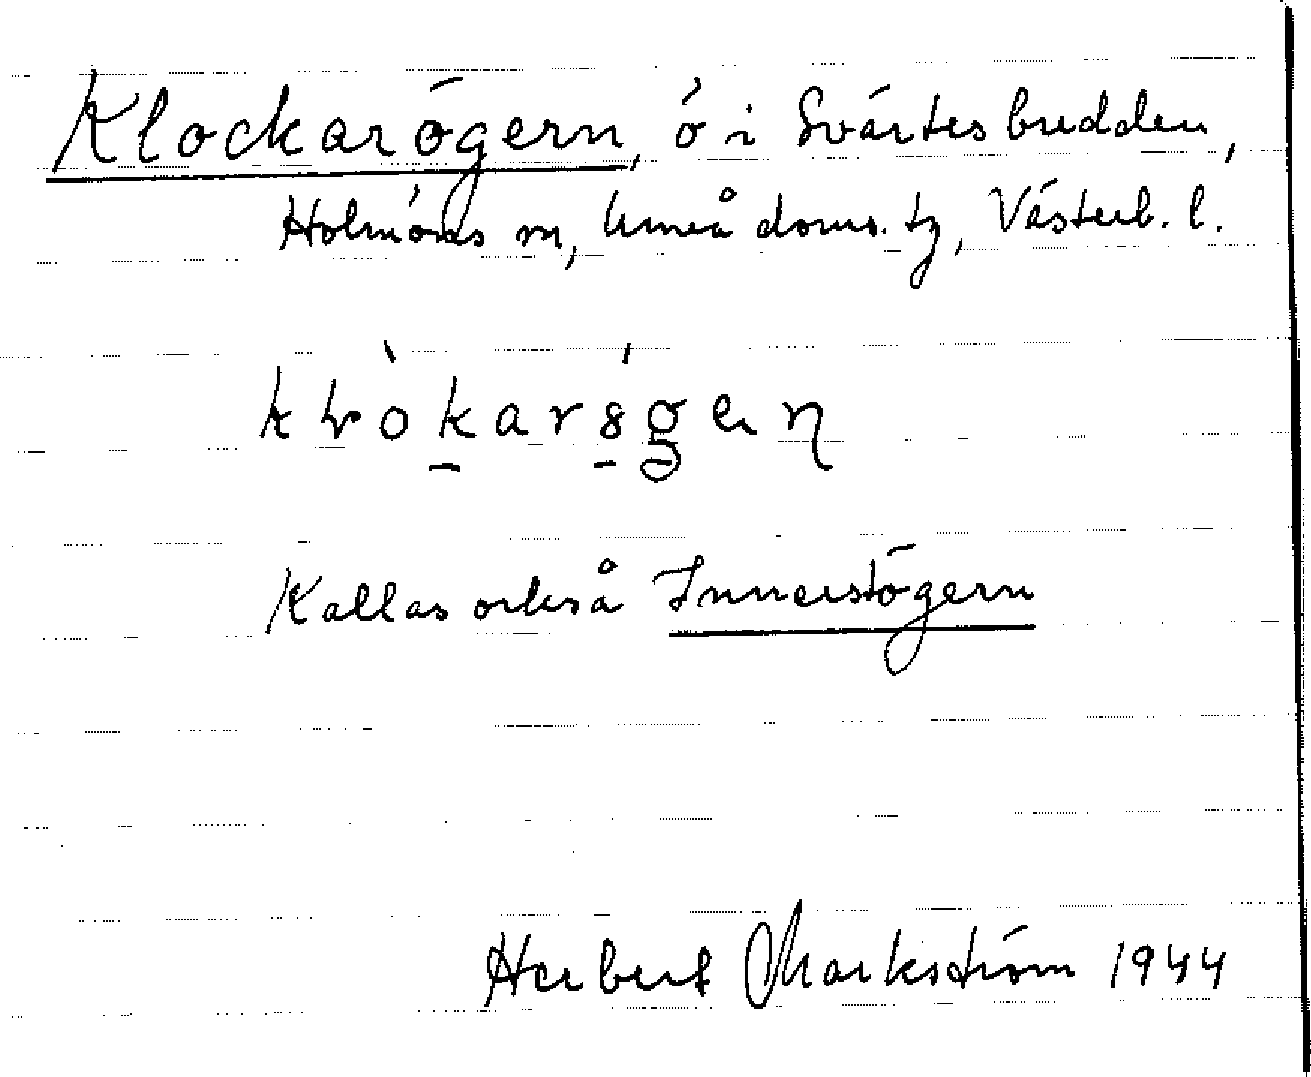 Klockarögern, ö i Svärtesbredden,
Holmöns sn, Umeå doms. tg, Västerb. l.
Kallas också Innerstögern
Herbert Markström 1944